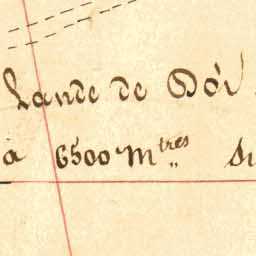 Lande de Dó
à 6500 Mtres